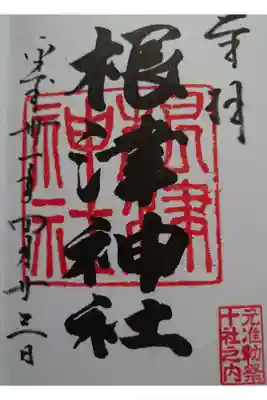 奉拝
根津神社
根津
神社
平成卅一年四月廿三日
元准勅祭
十社之内